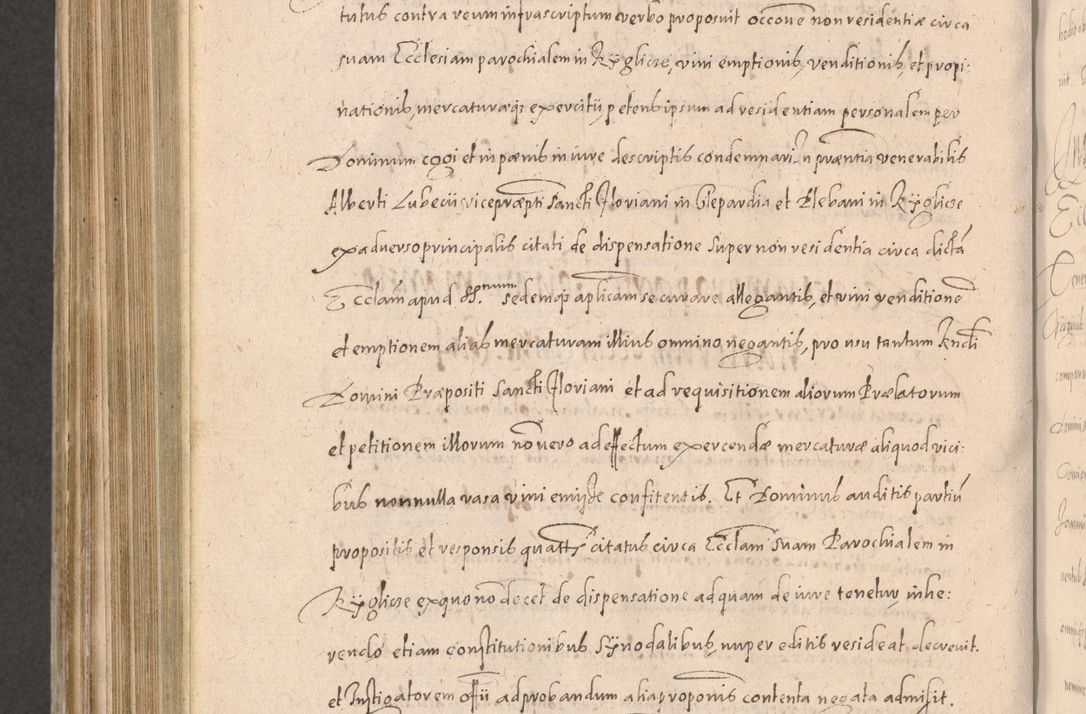 tutus contra reum infrascriptum verbo proposuit occone non residentiæ circa
suam Ecclesiam parochialem in Ryglicze, vini emptionis, venditionis, et propi:
nationis, mercaturæqs exercitij petens ipsum ad residentiam personalem per
Dominum cogi et in pœnis in iure descriptis condemnari. In præntia venerabilis
Alberti Lubecii vicepræpti Sancti Floriani in Clepardia et Plebani in Ryglicze
ex adverso principalis citati de dispensatione super non residentia circa dictã
Ecclam apud S.mum sedemqs aplicam se curare allegantis, et vini venditionẽ
et emptionem alias mercaturam illius omnino negantis, pro usu tantum Rndi
Domini Præpositi Sancti Floriani et ad requisitionem aliorum Prælatorum
et petitionem illorum nõ vero ad effectum exercendæ mercaturæ aliquod vici:
bus nonnulla vasa vini emisse confitentis. Et Dominus auditis partiũ
propositis et responsis quatt. citatus circa Ecclam suam Parochialem in
Ryglicze ex quo nõ docet de dispensatione ad quam de iure tenetur, inhe:
rendo etiam constitutionibus Synodalibus, nuper editis resideat decrevit.
et Instigatorem offii ad probandum alia proponis contenta negata admisit.